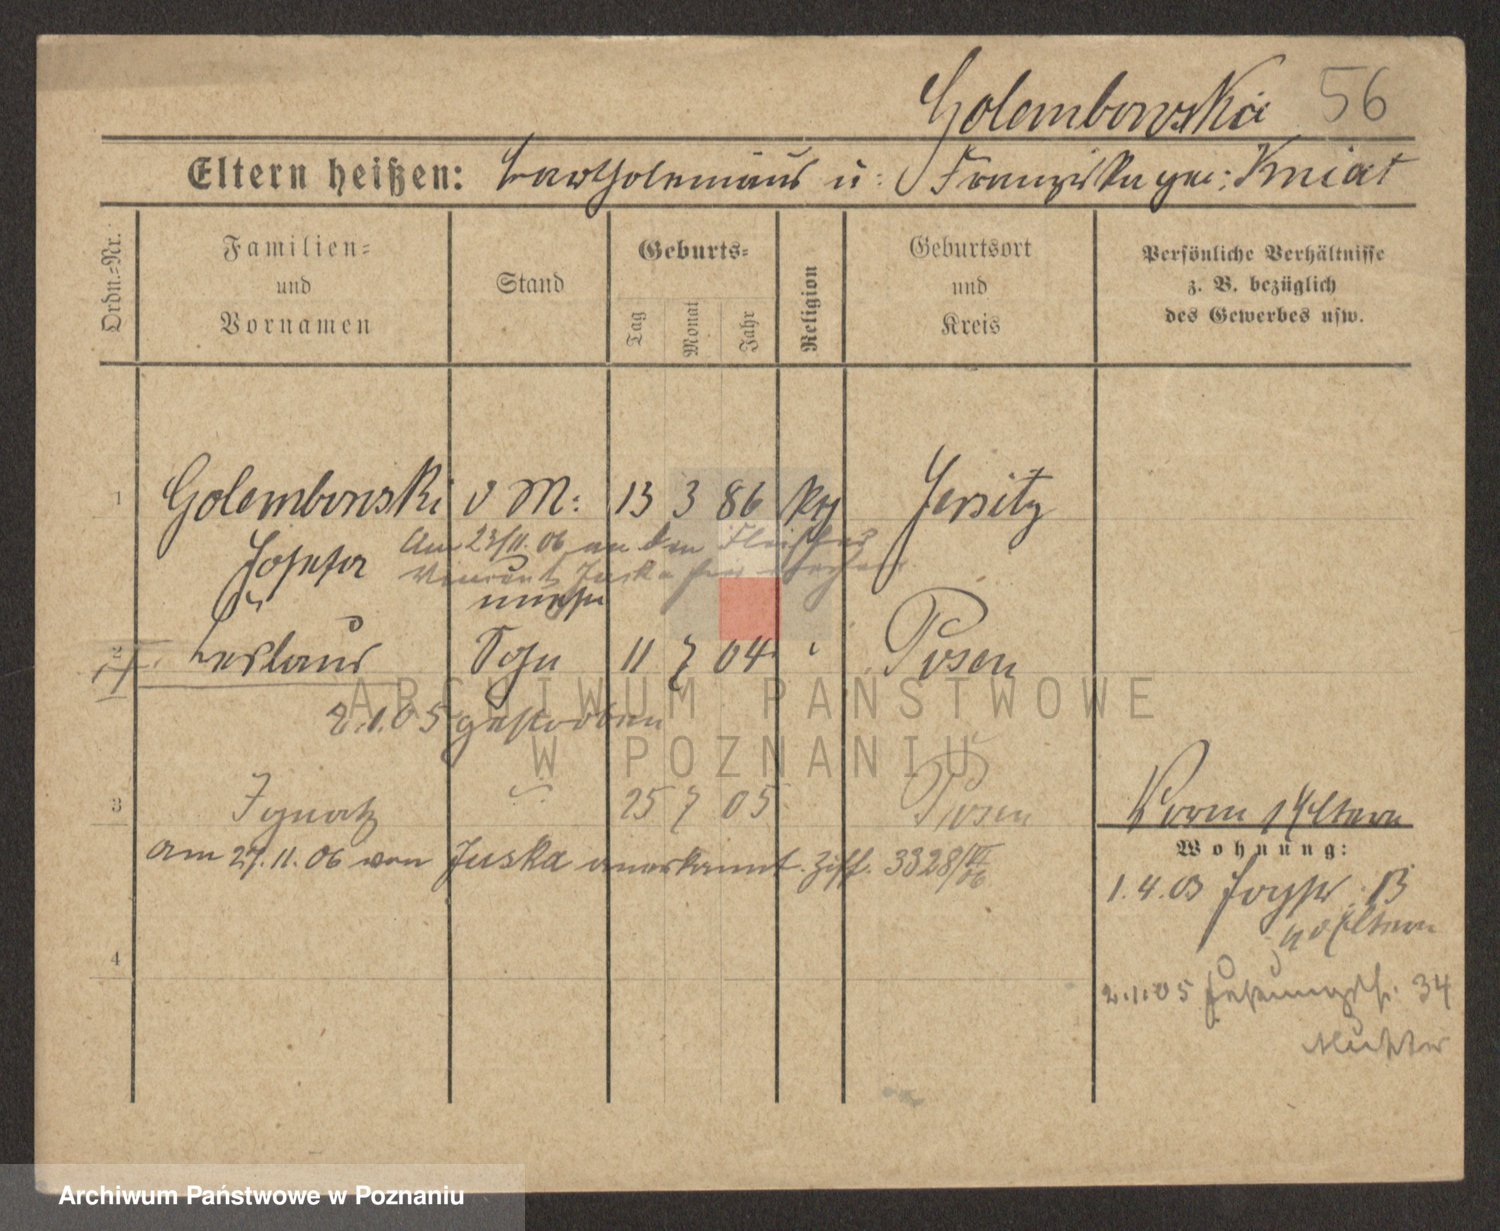 Golembowska 56
Eltern heißen: Bartholomäus u: Franziska geb: Kniat
Ordn.=Nr.
Familien=
und
Vornamen
Stand
Geburts=
Tag
Monat
Jahr
Religion
Geburtsort
und
Kreis
Persönliche Verhältnisse
z. B. bezüglich
des Gewerbes usw.
1 Golembowski d M: 13 3 86 Jersitz
Josefa
Am 23/11.06 an den Fleischer
Vincent Juska
unehe
2 Ceslaus Sohn 11 7 04 Posen
2.1.05 gestorben
3 Ignatz 25 7 05 Posen
am 27.11.06 von Juska anerkannt. Ziff. 3328/06
4
Wohnung:
1.4.03
Eltern
2.1.05 34
Mutter
ARCHIWUM PAŃSTWOWE
W POZNANIU
Archiwum Państwowe w Poznaniu